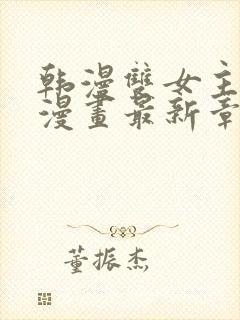 韩漫雙女主
漫畫最新章
董振杰